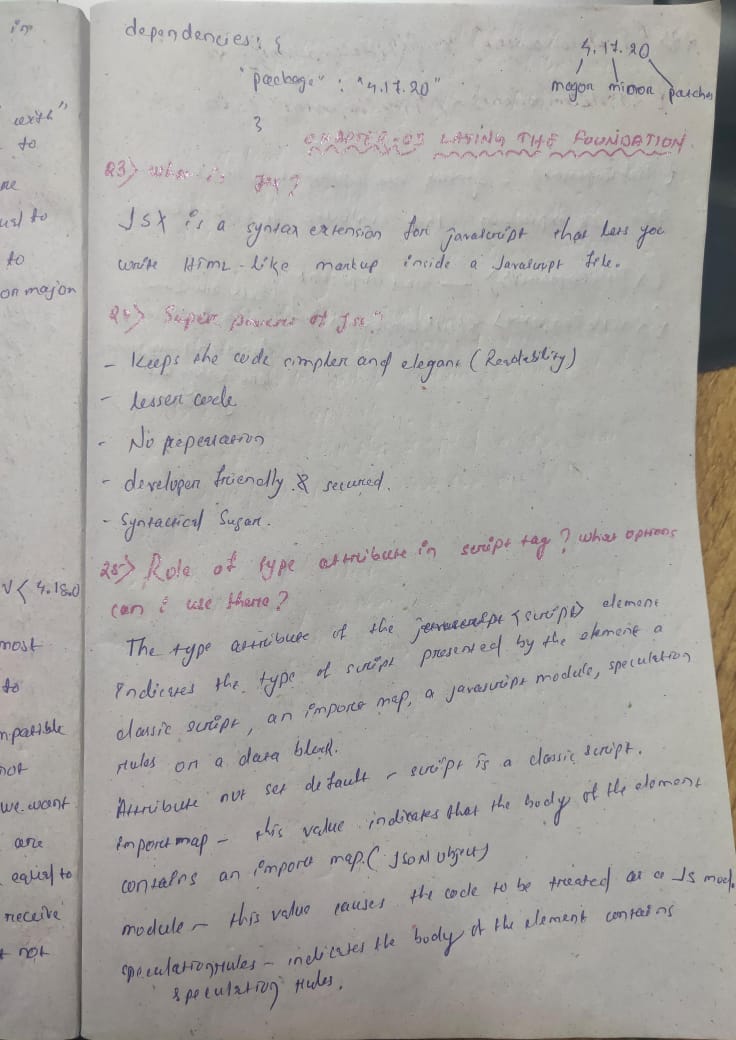 in
with"
to
ne
ual to
to
on major
V < 4.18.0
most
to
mpatible
not
we want
are
equal to
receive
t not
dependencies: {
"package" : "4.17.20"
}
4.17.20
major minor patches
CHAPTER-03 LAYING THE FOUNDATION
23) What is Jsx?
JSX is a syntax extension for javascript that lets you
write HTML-like markup inside a Javascript file.
24) Super powers of Jsx?
- Keeps the code simpler and elegant (Readability)
- lesser code
- No repetation
- developer friendly & secured.
- Syntactical Sugar.
25) Role of type attribute in script tag? what options
can i use there?
The type attribute of the <script> element
indicates the type of script presented by the element a
classic script, an import map, a javascript module, speculation
rules or a data block.
Attribute not set default - script is a classic script.
importmap - this value indicates that the body of the element
contains an import map. (JSON object)
module - this value causes the code to be treated as a Js mod.
speculationrules - indicates the body of the element contains
speculation rules.